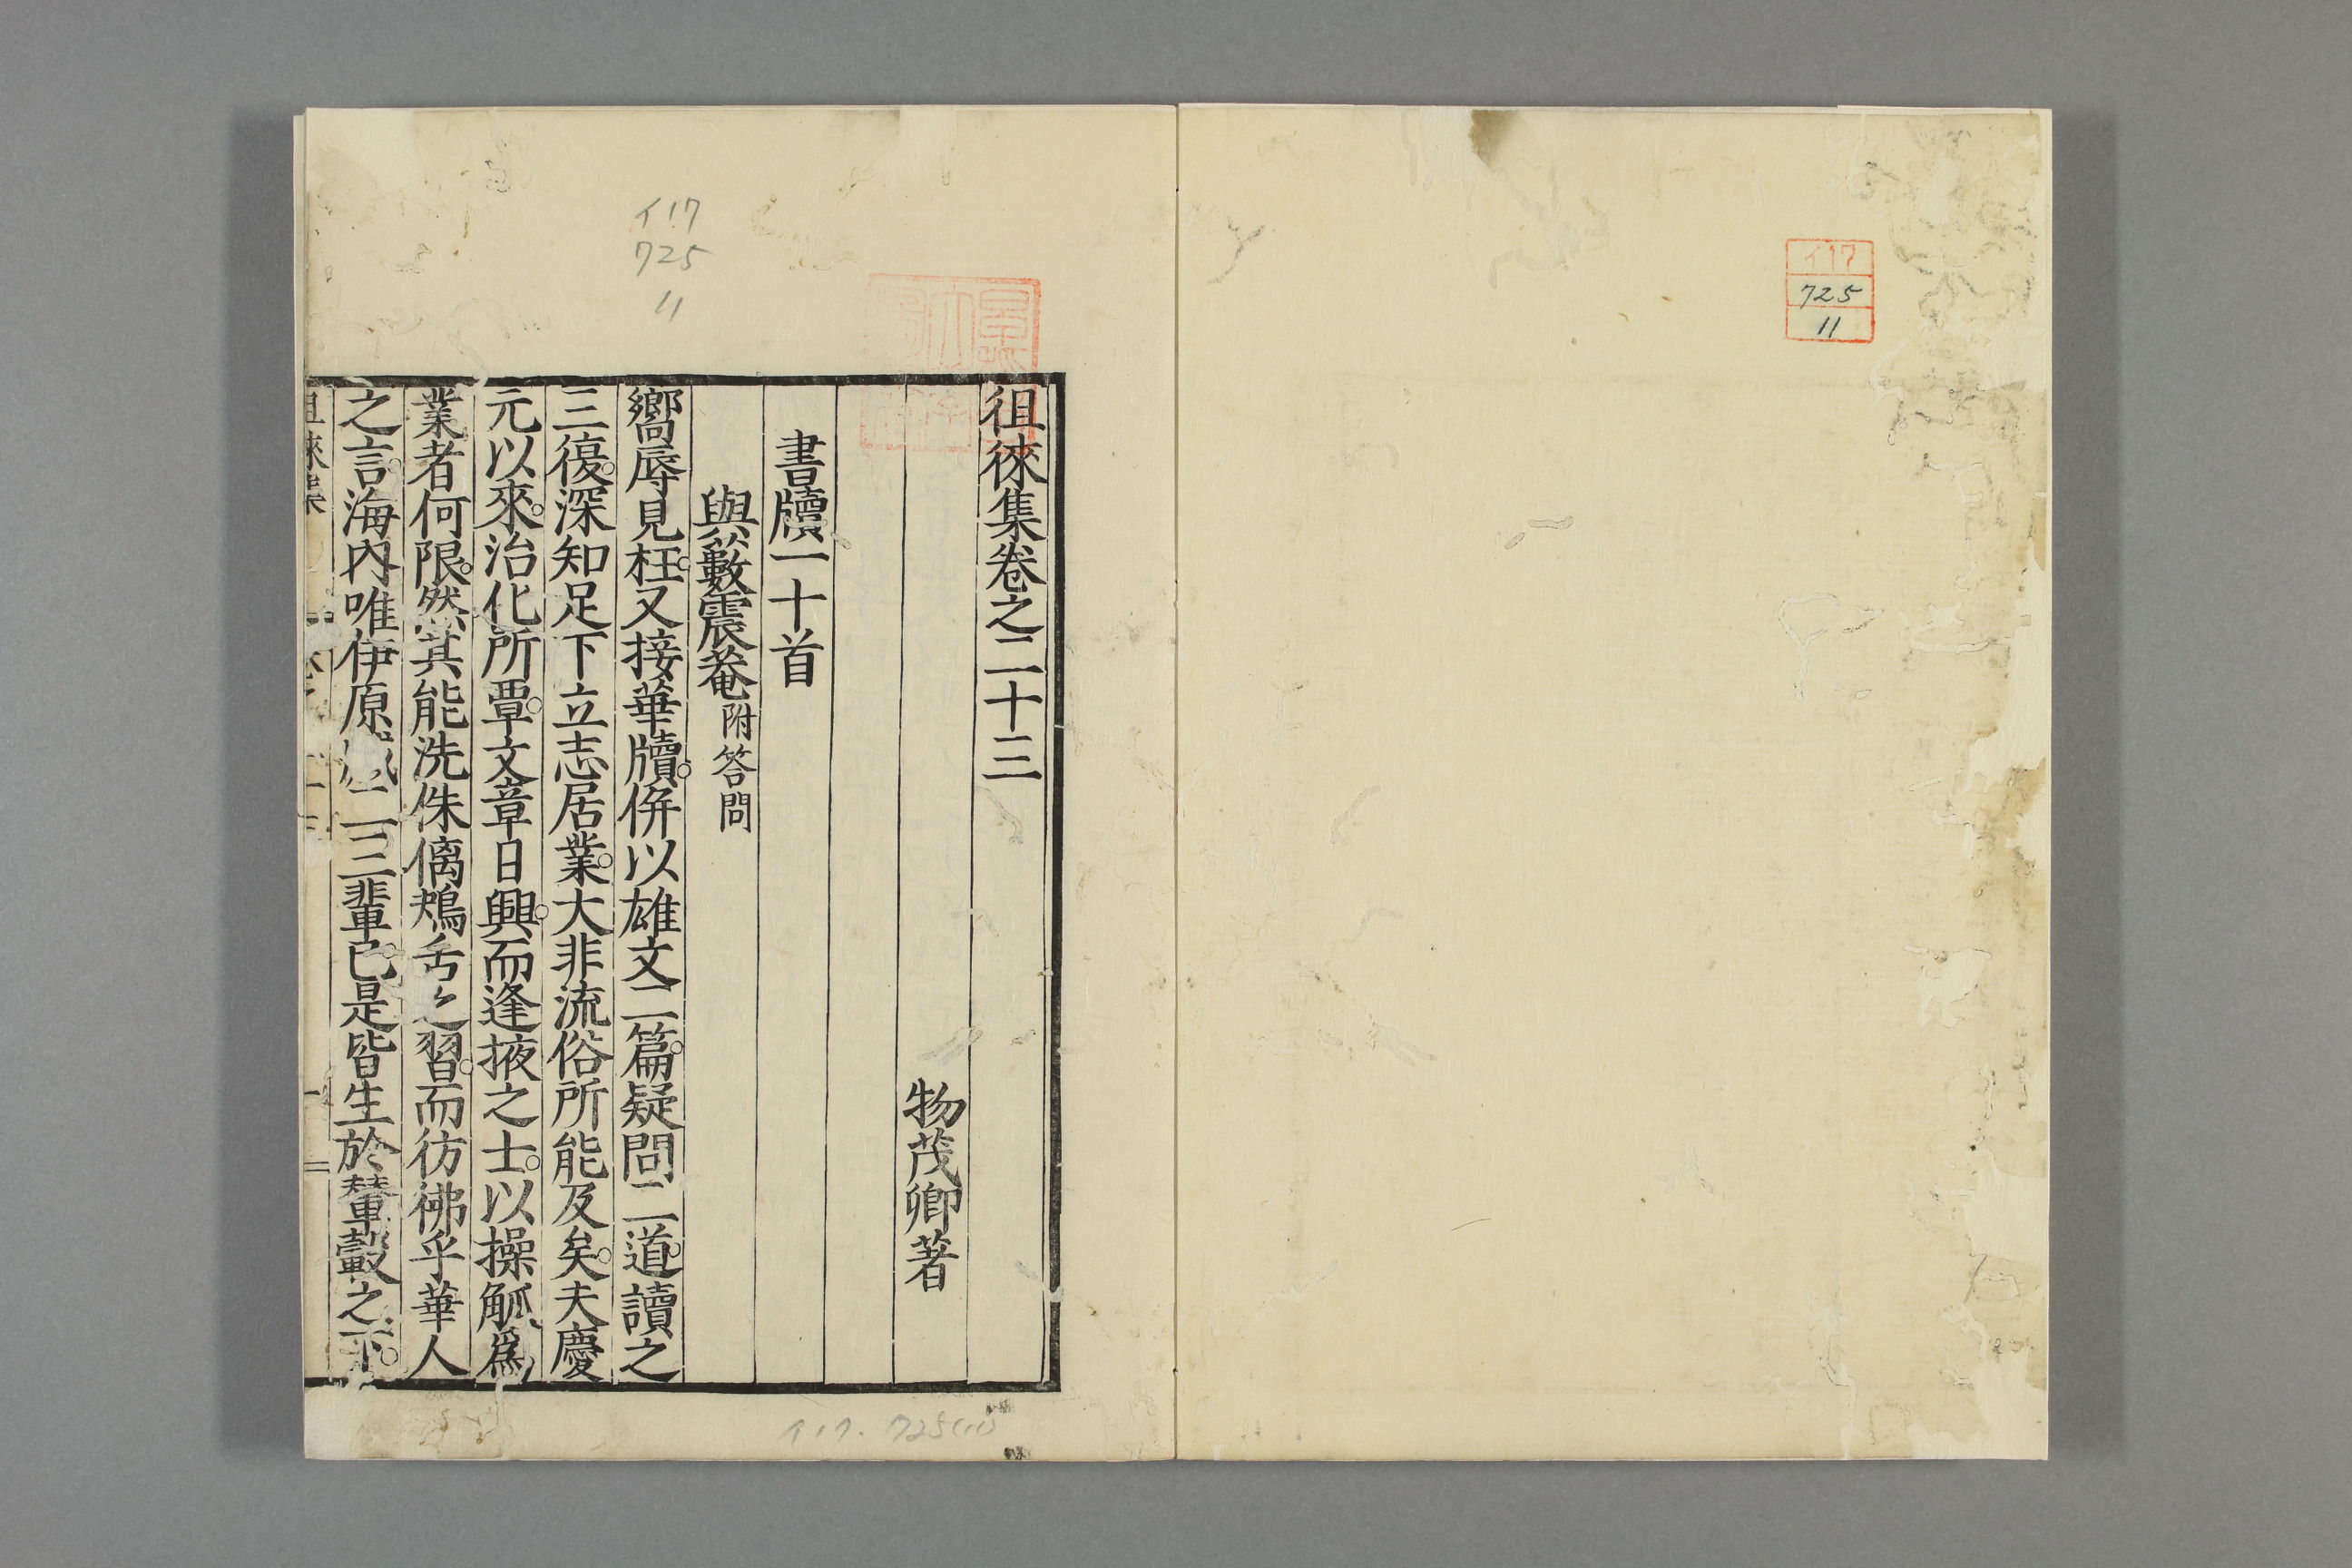 イ17
725
11
徂徠集卷之二十三
物茂卿著
書牘一十首
與藪震菴附答問
嚮辱見枉。又接華牘。併以雄文二篇。疑問二道。讀之
三復。深知足下立志居業。大非流俗所能及矣。夫慶
元以來。治化所覃。文章日興。而逢掖之士。以操觚爲
業者何限。然其能洗侏𠌯鴂舌之習。而彷彿乎華人
之言。海內唯伊原藏二三輩已。是皆生於輦轂之下。
イ17
725
11
イ17.725(11)